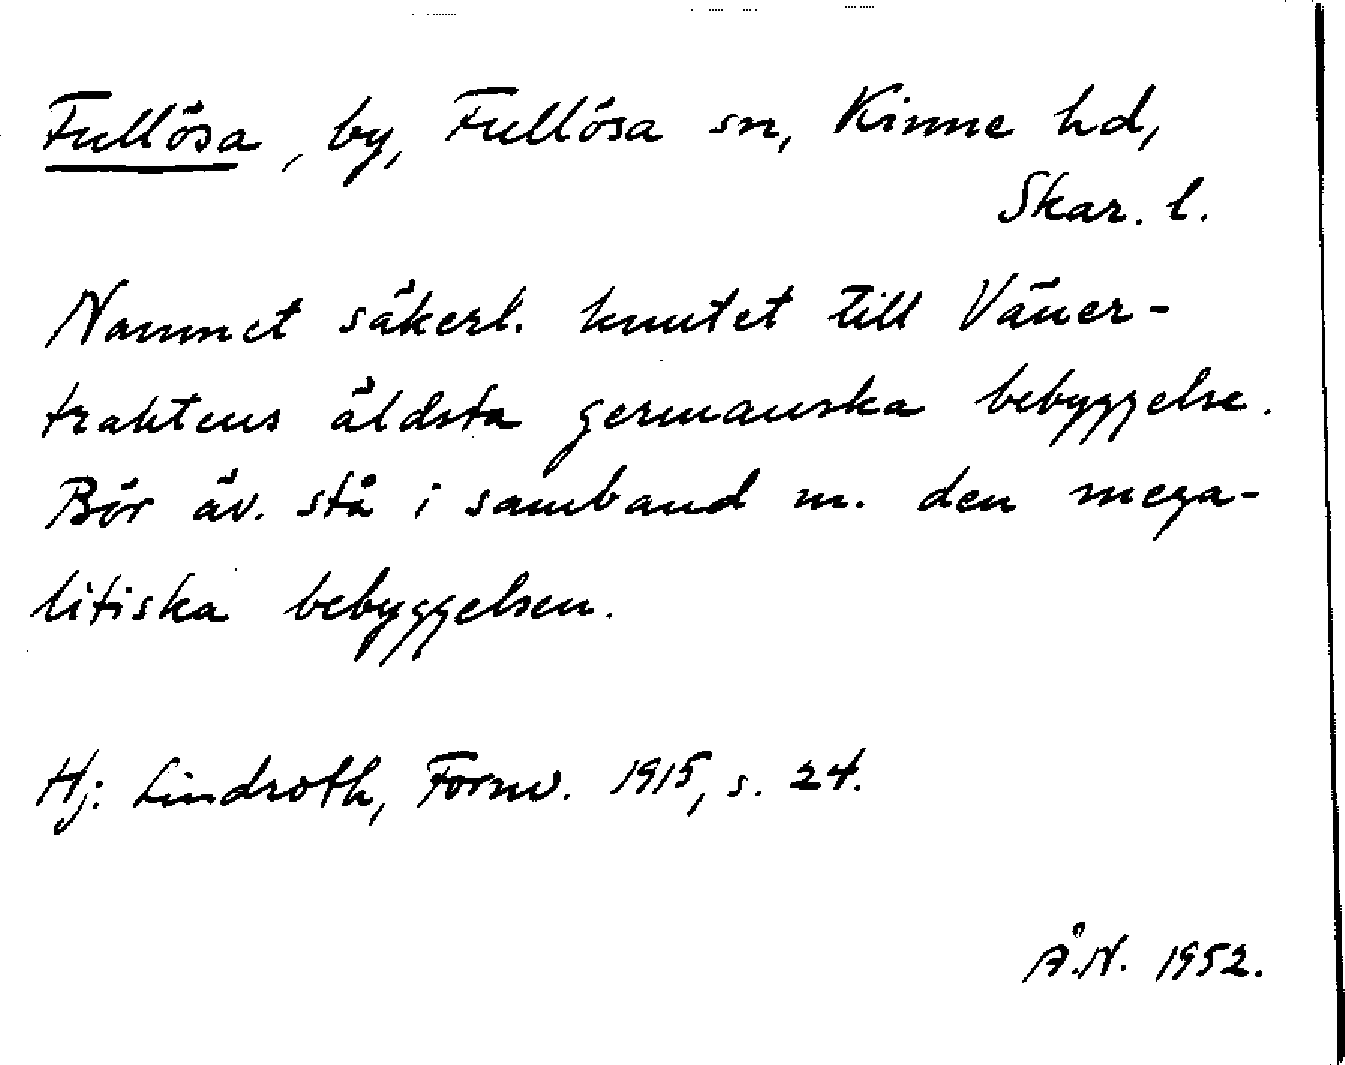 Fullösa, by, Fullösa sn, Kinne hd,
Skar. l.
Namnet säkerl. knutet till Väner-
traktens äldsta germanska bebyggelse.
Bör äv. stå i samband m. den mega-
litiska bebyggelsen.
Hj. Lindroth, Fornv. 1915, s. 24.
Å.N. 1952.